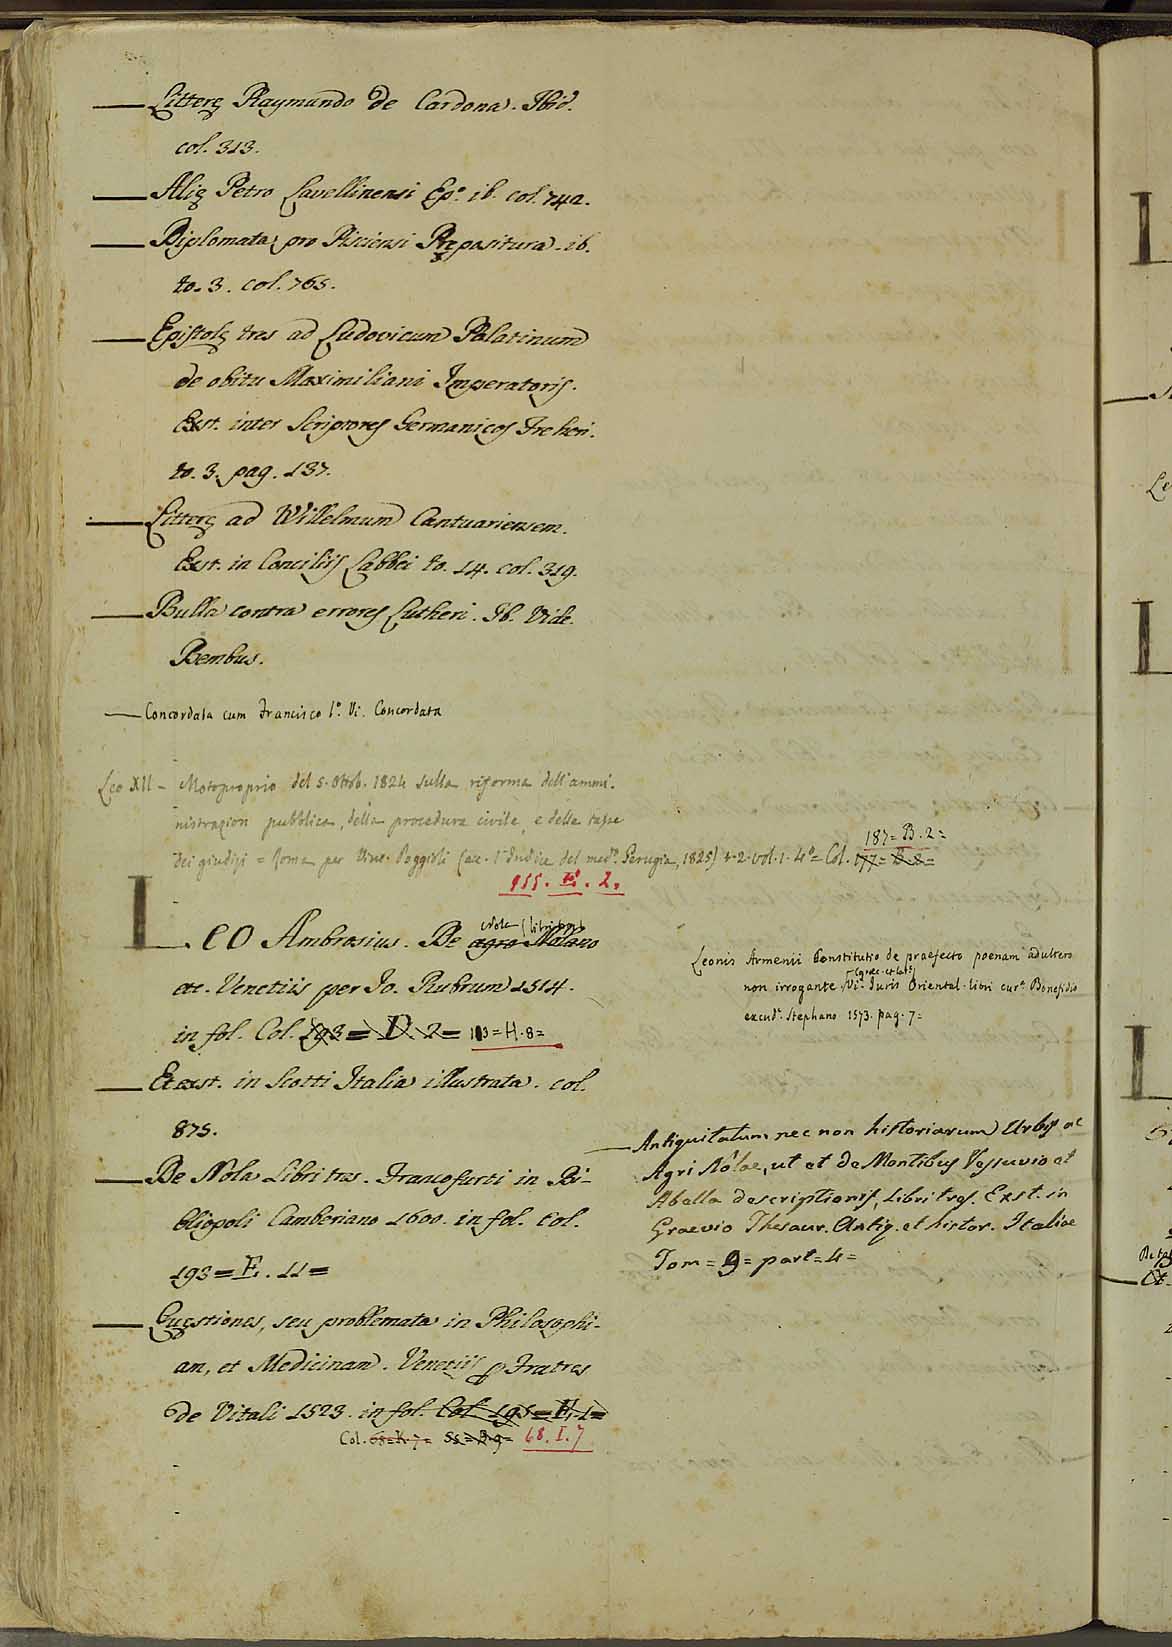 — Litterę Raymundo de Cardona. Ibid.
col. 313.
— Alię Petro Lavellinensi Ep.º ib. col. 742.
— Diplomata pro Pisciensi Prępositura. ib.
to. 3. col. 765.
— Epistolę tres ad Ludovicum Palatinum
de obitu Maximiliani Imperatoris.
Exst. inter Scriptores Germanicos Freheri.
to. 3. pag. 137.
— Litterę ad Willelmum Cantuariensem.
Exst. in Conciliis Labbei to. 14. col. 319.
— Bulla contra errores Lutheri. Ib. Vide.
Bembus.
— Concordata cum Francisco I.º Vi. Concordata
Leo XII — Motoproprio del 5. Ottob. 1824 sulla riforma dell'ammi-
nistrazion pubblica, della procedura civile, e delle tasse
dei giudizj = Roma per Vinc. Poggioli (acc. l'Indice del med.º Perugia, 1825) t. 2. vol. 1. 4º = Col. 177 = B. 2 =
187 = B. 2 =
955. E. 2.
LEO Ambrosius. De agro Nolano
Nola libri
etc. Venetiis per Jo. Rubrum 1514.
in fol. Col. 193 = D. 2 = 103 = H. 8 =
— Et exst. in Scotti Italia illustrata. col.
875.
— De Nola Libri tres. Francofurti in Bi-
bliopoli Camberiano 1600. in fol. Col.
193 = E. 11 =
— Quęstiones, seu problemata in Philosophi-
am, et Medicinam. Venetiis p Fratres
de Vitali 1523. in fol. Col. 195 = F. 1 =
Col. 68 = K. 7 = 55 = B. 9 = 68. I. 7
Leonis Armenii Constitutio de praefecto poenam adulteris
non irrogante (graec. et lat.) Vi. Juris Oriental. libri cur.ª Bonefidio
excud.º Stephano 1573. pag. 7 =
— Antiquitatum nec non historiarum Urbis ac
Agri Nolae, ut et de Montibus Vesuvio et
Abella descriptionis, Libri tres. Exst. in
Graevio Thesaur. Antiq. et histor. Italiae
Tom = 9 = part = 4 =